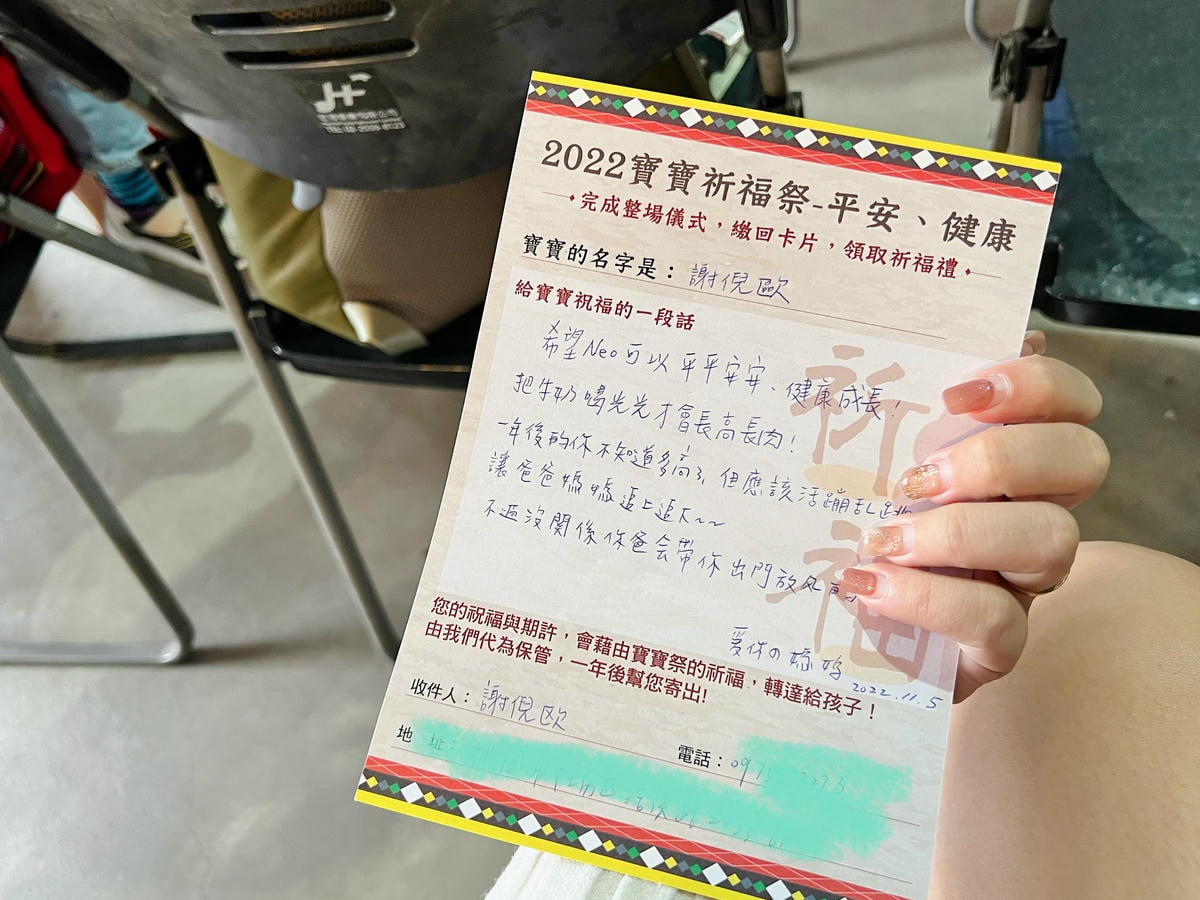 2022寶寶祈福祭-平安、健康
完成整場儀式，繳回卡片，領取祈福禮
寶寶的名字是：謝倪歐
給寶寶祝福的一段話
希望Neo可以平平安安、健康成長！
把牛奶喝光光才會長高長肉！
一年後的你不知道多高了，但應該活蹦乱跳
讓爸爸媽媽追上追下~~
不過沒關係你爸会帶你出門放風
愛你の媽媽
2022.11.5
祈福
您的祝福與期許，會藉由寶寶祭的祈福，轉達給孩子！
由我們代為保管，一年後幫您寄出!
收件人：謝倪歐
電話：097
地址：